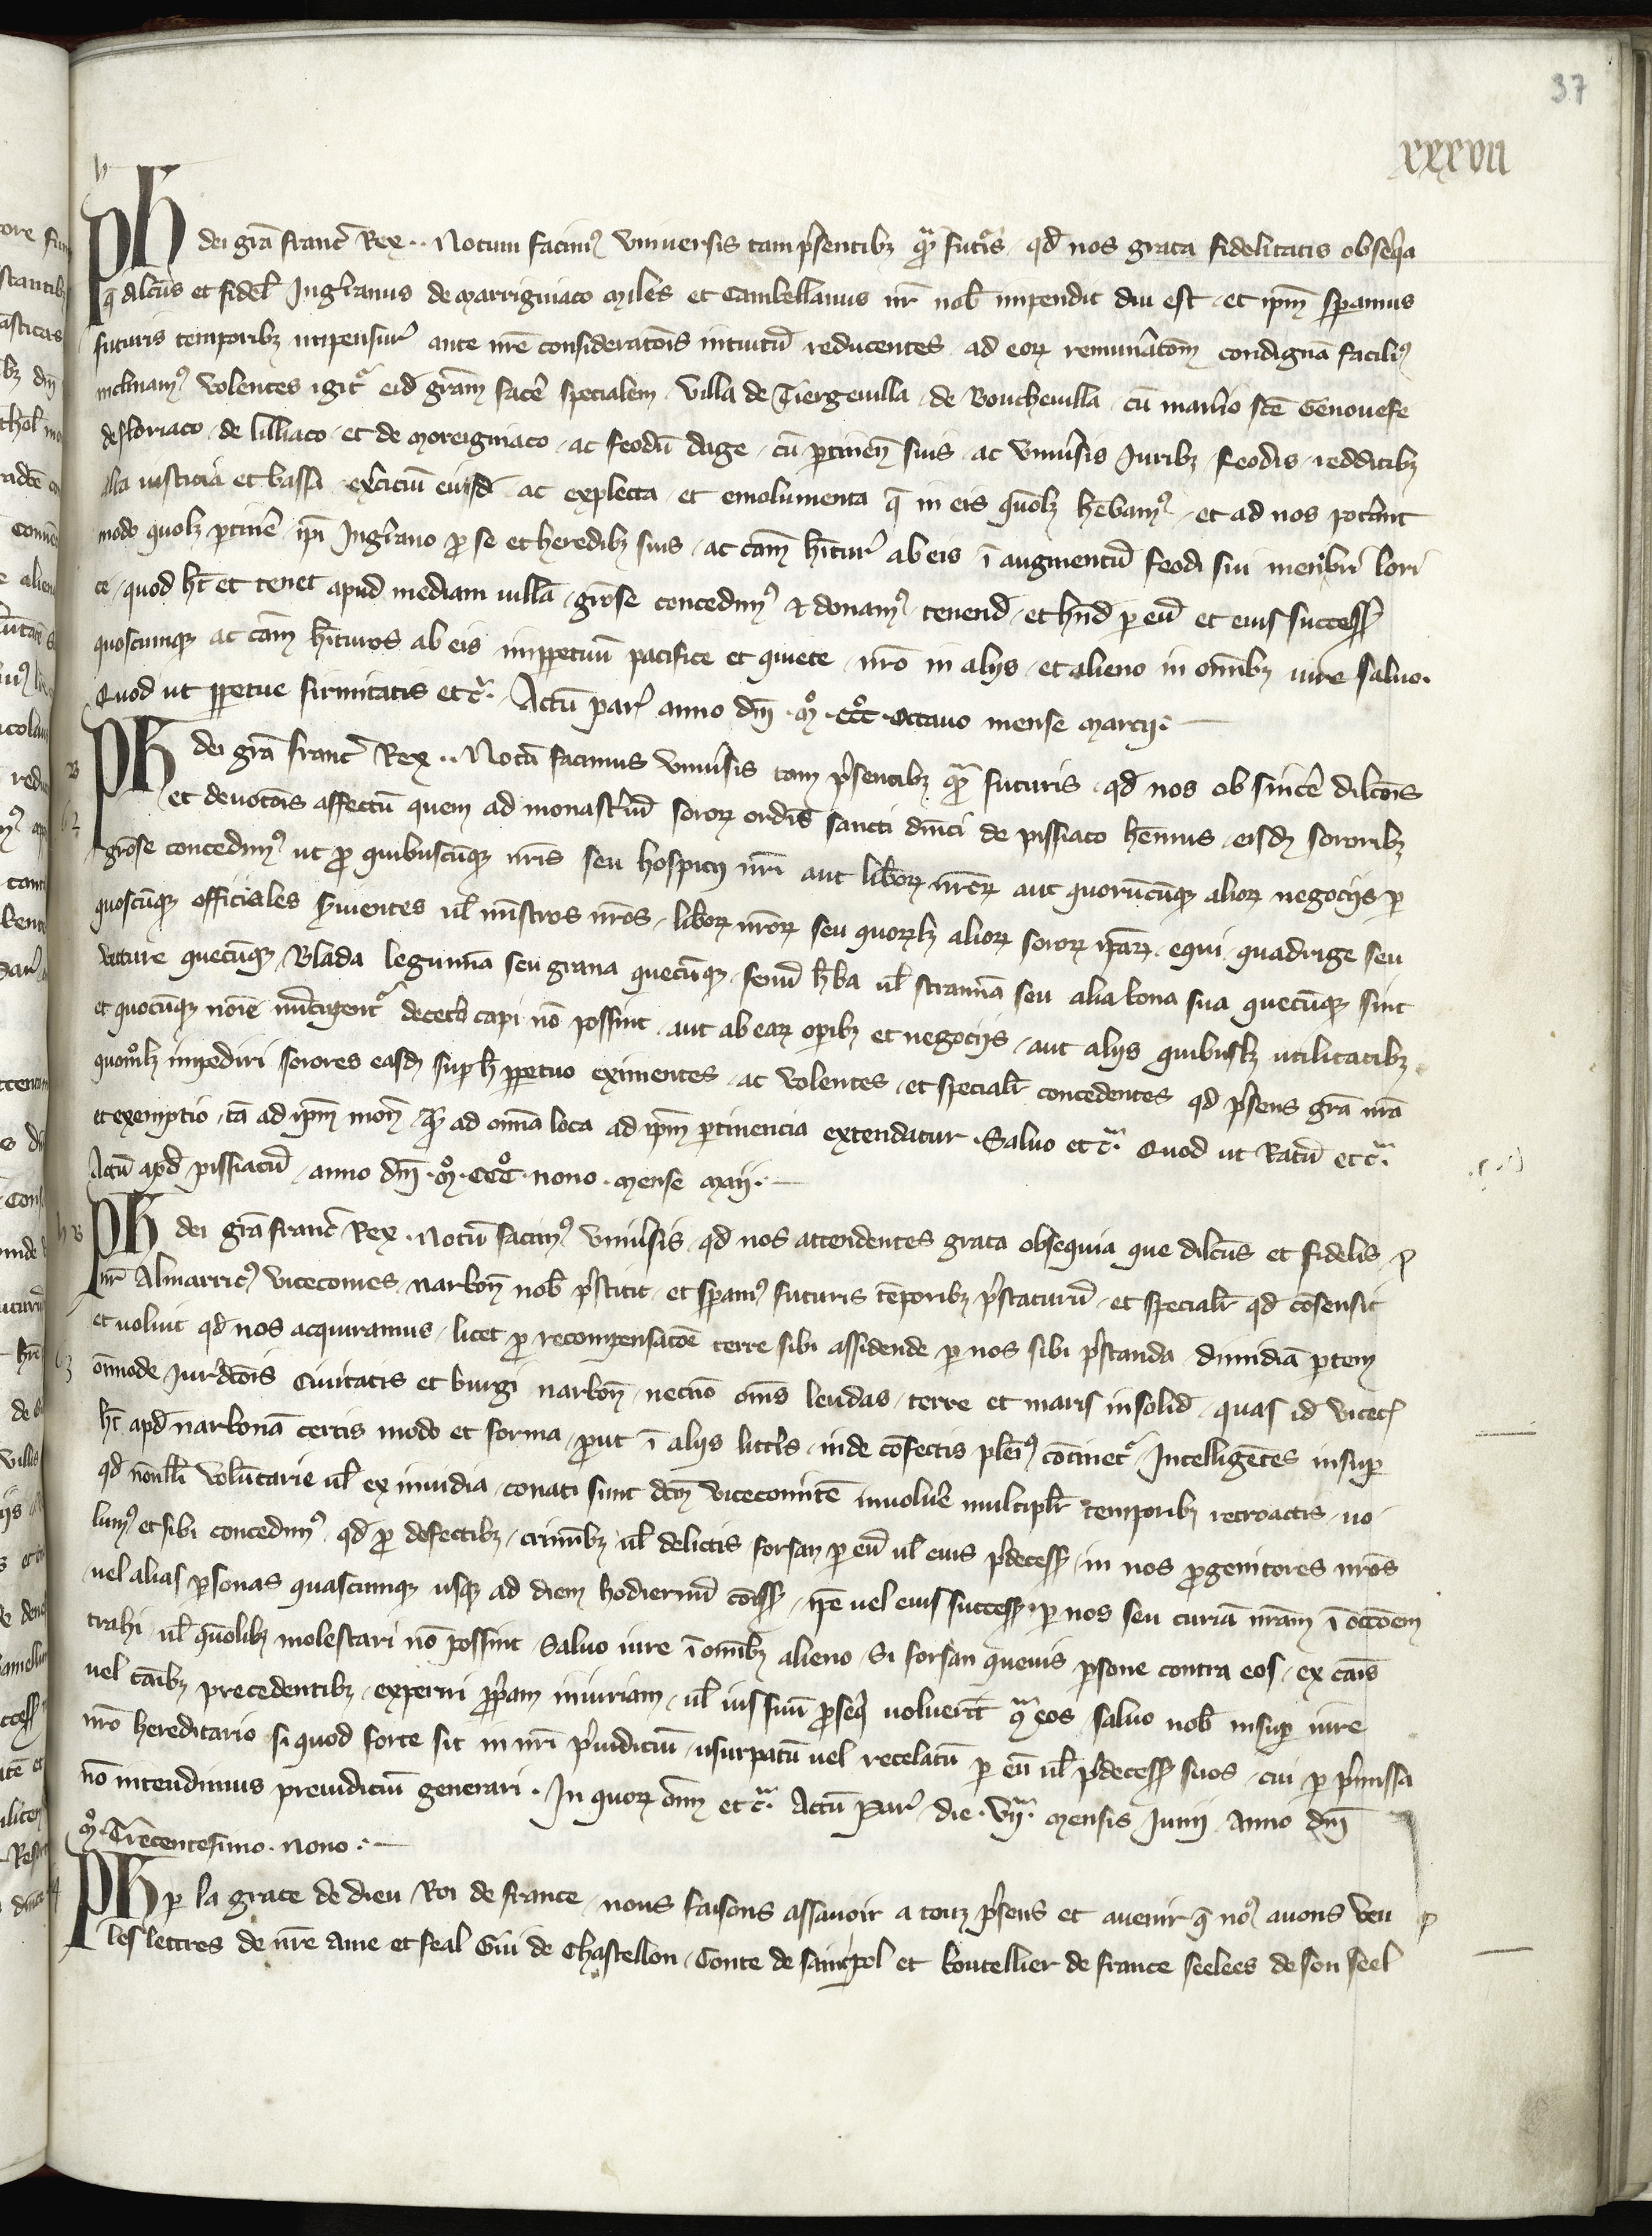 37
xxxvii
Ph dei gr̄a franc̄ Rex .. Notum facimꝰ vniuersis tam p̄sentibꝫ qͣm futuris qd̄ nos grata fidelitatis obseq̄a
q̄ dilcūs et fidel̄ Ingr̄anus de Marrigniaco Miles et Cambellanus nr̄ nob̄ impendit diu est et ip̄m speramus
futuris temporibꝫ impensur̄ ante nr̄e consideratōis intuitū reducentes ad eoꝝ remun̄atōm condignā faciliꝰ
inclinamꝰ volentes igitͬ eid̄ gr̄am facē specialem villa de Tiergeuilla de Boucheuilla cū man̄io sc̄e Genouefe
de floriaco de lilliaco et de Moreigniaco ac feodū dage cū ꝑtinen̄ suis ac vniu̓sis Iuribꝫ feodis redditibꝫ
alta iusticia et bassa exc̓iciū eiusd̄ ac explecta et emolumenta q̄ in eis quōlꝫ hēbamꝰ et ad nos pot̓ant
modo quolꝫ ꝑtin̄e ip̄i Ingr̓ano ꝓ se et heredibꝫ suis ac cām hītur̄ ab eis ī augmentū feodi sui menbri lori
ce quod hēt et tenet apud mediam uillā gr̄ose concedimꝰ et donamꝰ tenend̄ et hn̄d ꝑ eū et eius successꝭ
quoscumqꝫ ac cām hīturos ab eis imꝑpetuū pacifice et quiete nr̄o in alijs et alieno in om̄ibꝫ iure saluo.
Quod ut ꝑpetue firmitatis etc̄. Actū par̄ anno dn̄i .Mº.CCCº. octauo mense Marcij.
Ph dei gr̄a franc̄ Rex .. Notū facimus vniu̓sis tam p̄sentibꝫ qͣm futuris qd̄ nos ob sinc̄e dilcōis
et deuotōis affectū quem ad monast̓iū soroꝝ ordīs sancti dn̄ici de pissiaco hēmus eisdꝫ sororibꝫ
gr̄ose concedimꝰ ut ꝓ quibuscūqꝫ nr̄is seu hospicij nr̄i aut lib̄oꝝ nr̄oꝝ aut quorūcūqꝫ alioꝝ negocijs ꝑ
quoscūqꝫ officiales s̓uientes ul̄ mīstros nr̄os lib̄oꝝ nr̄oꝝ seu quoꝝlꝫ alioꝝ soroꝝ ip̄aꝝ equi quadrige seu
vecture quecūqꝫ Blada legumīa seu grana quecūqꝫ fenū h̓ba ul̄ stramīa seu alia bona sua quecūqꝫ sint
et quocūqꝫ noīe nūcupent̉ decet̓o capi nō possint aut ab eaꝝ op̓ibꝫ et negocijs aut alijs quibuslꝫ utilitatibꝫ
quomōlꝫ impediri sorores easdꝫ suꝑ h̄ ꝑpetuo eximentes ac volentes et specialr̄ concedentes qd̄ p̄sens gr̄a nr̄a
et exemptio tā ad ip̄m mon̄ qͣm ad om̄a loca ad ip̄m ꝑtinencia extendatur Saluo etc̄. Quod ut Ratū etc̄.
Actū apd̄ pissiacū anno dn̄i .Mº.CCCº. nono mense Maij.
Ph dei gr̄a franc̄ Rex . Notū facimꝰ vniu̓sis qd̄ nos attendentes grata obsequia que dilcūs et fidelis
nr̄ Almarricꝰ vicecomes Narbon̄ nob̄ p̄stitit et speramꝰ futuris tēporibꝫ p̄staturū et specialr̄ qd̄ cōsensit
et voluit qd̄ nos acquiramus licet ꝓ recompensatōe terre sibi assidende ꝑ nos sibi p̄standa dimidiā ꝑtem
om̄imode Iurid̄cōis Ciuitatis et burgi Narbon̄ necnō om̄s leudas terre et maris insolid̄ quas id̄ vicecꝭ
hēt apd̄ Narbonā certis modo et forma ꝓut ī alijs litt̓is inde cōfectis pleīꝰ cōtinet̉ Intelligētes insuꝑ
qd̄ nōnlli volūtarie ul̄ ex inuidia conati sunt dc̄m vicecomitē inuolu̓e multiplr̄ temporibꝫ retroactis vo
lumꝰ et sibi concedimꝰ qd̄ ꝓ defectibꝫ crimībꝫ ul̄ delictis forsan ꝑ eū ul̄ eius p̄decessꝭ in nos ꝓgenitores nr̄os
uel alias ꝑsonas quascumqꝫ usqꝫ ad diem hodiernū cōmissꝭ ip̄e uel eius successꝭ ꝑ nos seu curiā nr̄am ī occōem
trahi ul̄ quōlibꝫ molestari nō possint Saluo iure ī om̄ibꝫ alieno Si forsan queuis ꝑsone contra eos ex cāis
uel cāibꝫ precedentibꝫ exꝑiri ꝓpriam iniuriam ul̄ ius suū ꝓseq̄ uoluerīt cͣ eos saluo nob̄ insuꝑ iure
nr̄o hereditario si quod forte sit in nr̄i p̄iudiciū usurpatū uel recelatū ꝑ eū ul̄ p̄decessꝭ suos cui ꝑ p̄missa
nō intendimus preiudiciū generari . In quoꝝ om̄ etc̄. Actū Par̄ die .vijͣ. mensis Iunij Anno dn̄i
.Mº. Trecentesimo . nono .
Ph ꝑ la grace de dieu Roi de france nous faisons assauoir a touz p̄sens et auenir q̄ noꝰ auons veu
les lettres de nr̄e ame et feal Gui de Chastellon Conte de saint pol et boutellier de france seelees de son seel